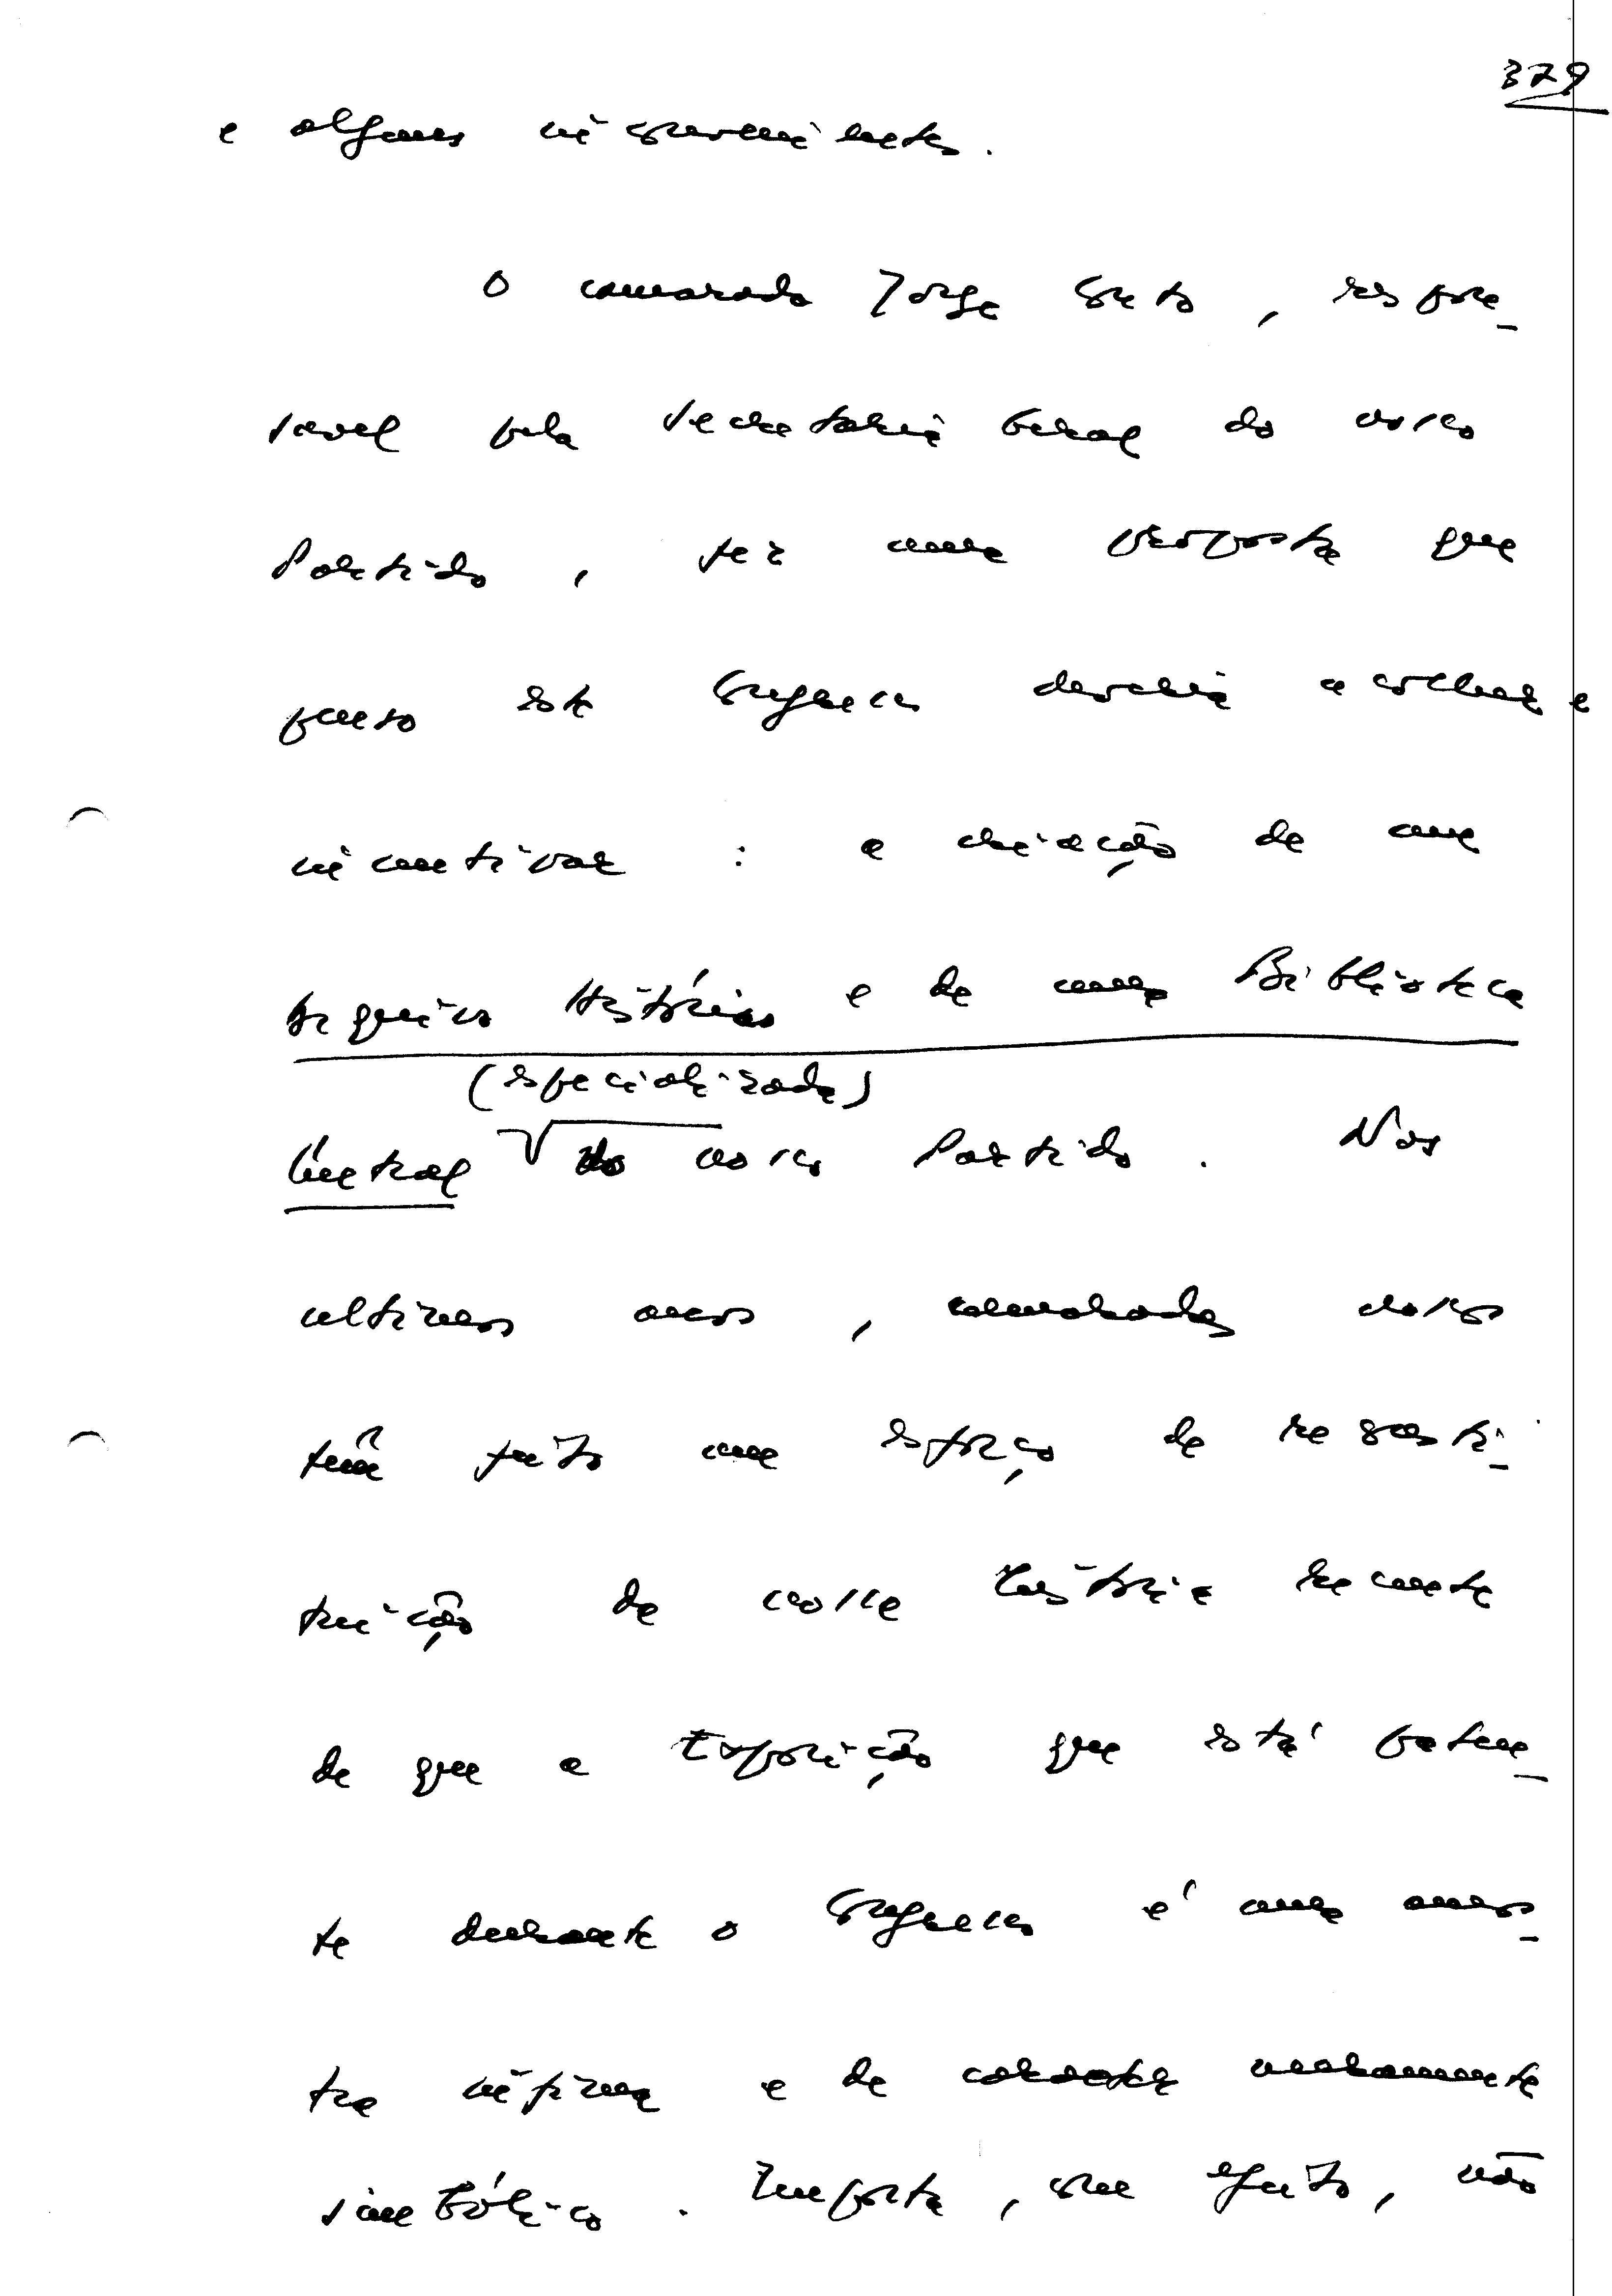 379
e alguns inconvenientes.
O camarada Jorge Couto, respon_
sável pela Secretaria Geral do nosso
Partido, fez uma proposta que
penso este Congresso deveria acolher e
incentivar : a criação de um
Arquivo Histórico e de uma Biblioteca
(especializada)
Central do nosso Partido. Nos
ultimos anos, camaradas nossos
têm feito um esforço de reconsti_
tuição da nossa história recente
de que a Exposição que está paten_
te durante o Congresso é uma amos_
tra ínfima e de caracter meramente
simbólico. Importa, com efeito, não